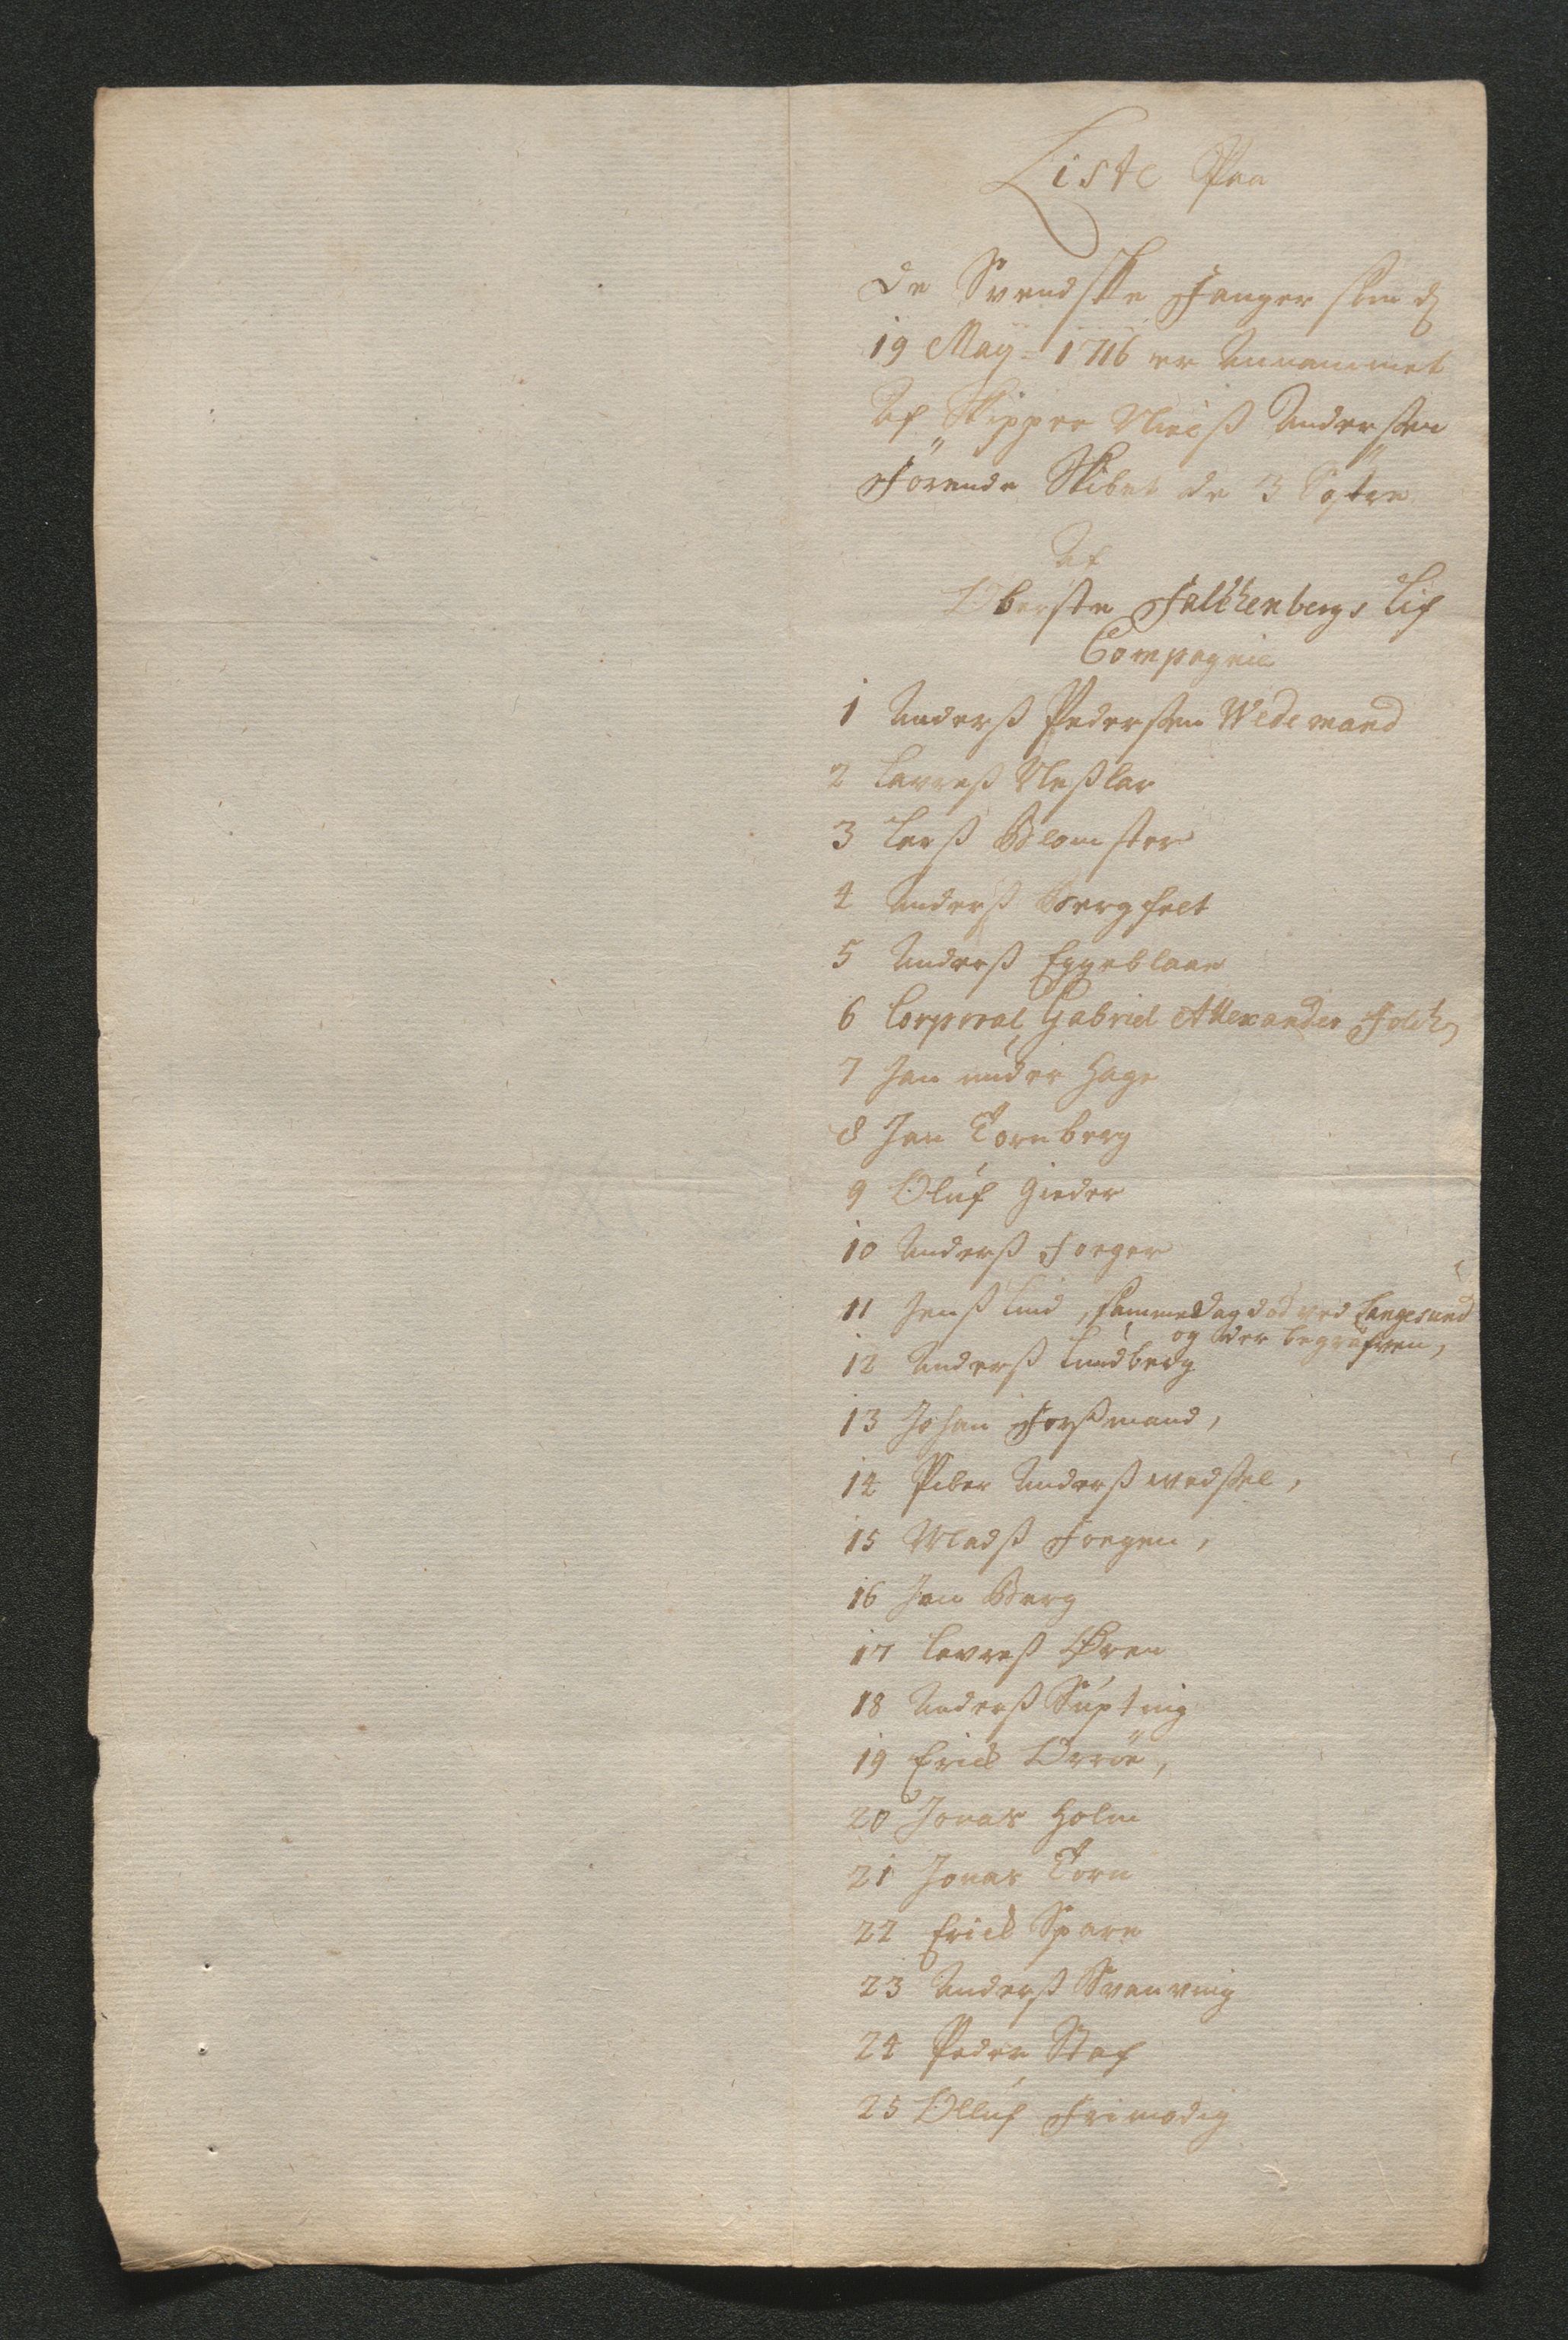 Liste Paa
de Svendske Fanger som d
19 May = 1716 er Annammet
Af Skipper Nielß Anderßen
Förende Skibet de 3 Søstre
Af
Obersten Falckenbergs Lif
Compagnie
1 Anderß Pederßen Wedemand
2 Lavreß Neßler
3 Larß Blomster
4 Anderß Bergfelt
5 Anderß Eggeblaar
6 Corporal Gabriel Allexander Folck
7 Jan under Hage
8 Jan Tornberg
9 Oluf Gieder
10 Anderß Forger
11 Jenß Lind, samme Dag død ved Langesund
og der begrafven,
12 Anderß Lundberg
13 Johan Forßmand,
14 Piber Anderß wedßel,
15 Madß Forgen,
16 Jan Berg
17 Lavreß Øren
18 Anderß Supting
19 Erick Orröe,
20 Jonas Holm
21 Jonas Torn
22 Erick Spare
23 Anderß Svanving
24 Peder Staf
25 Olluf Frimodig